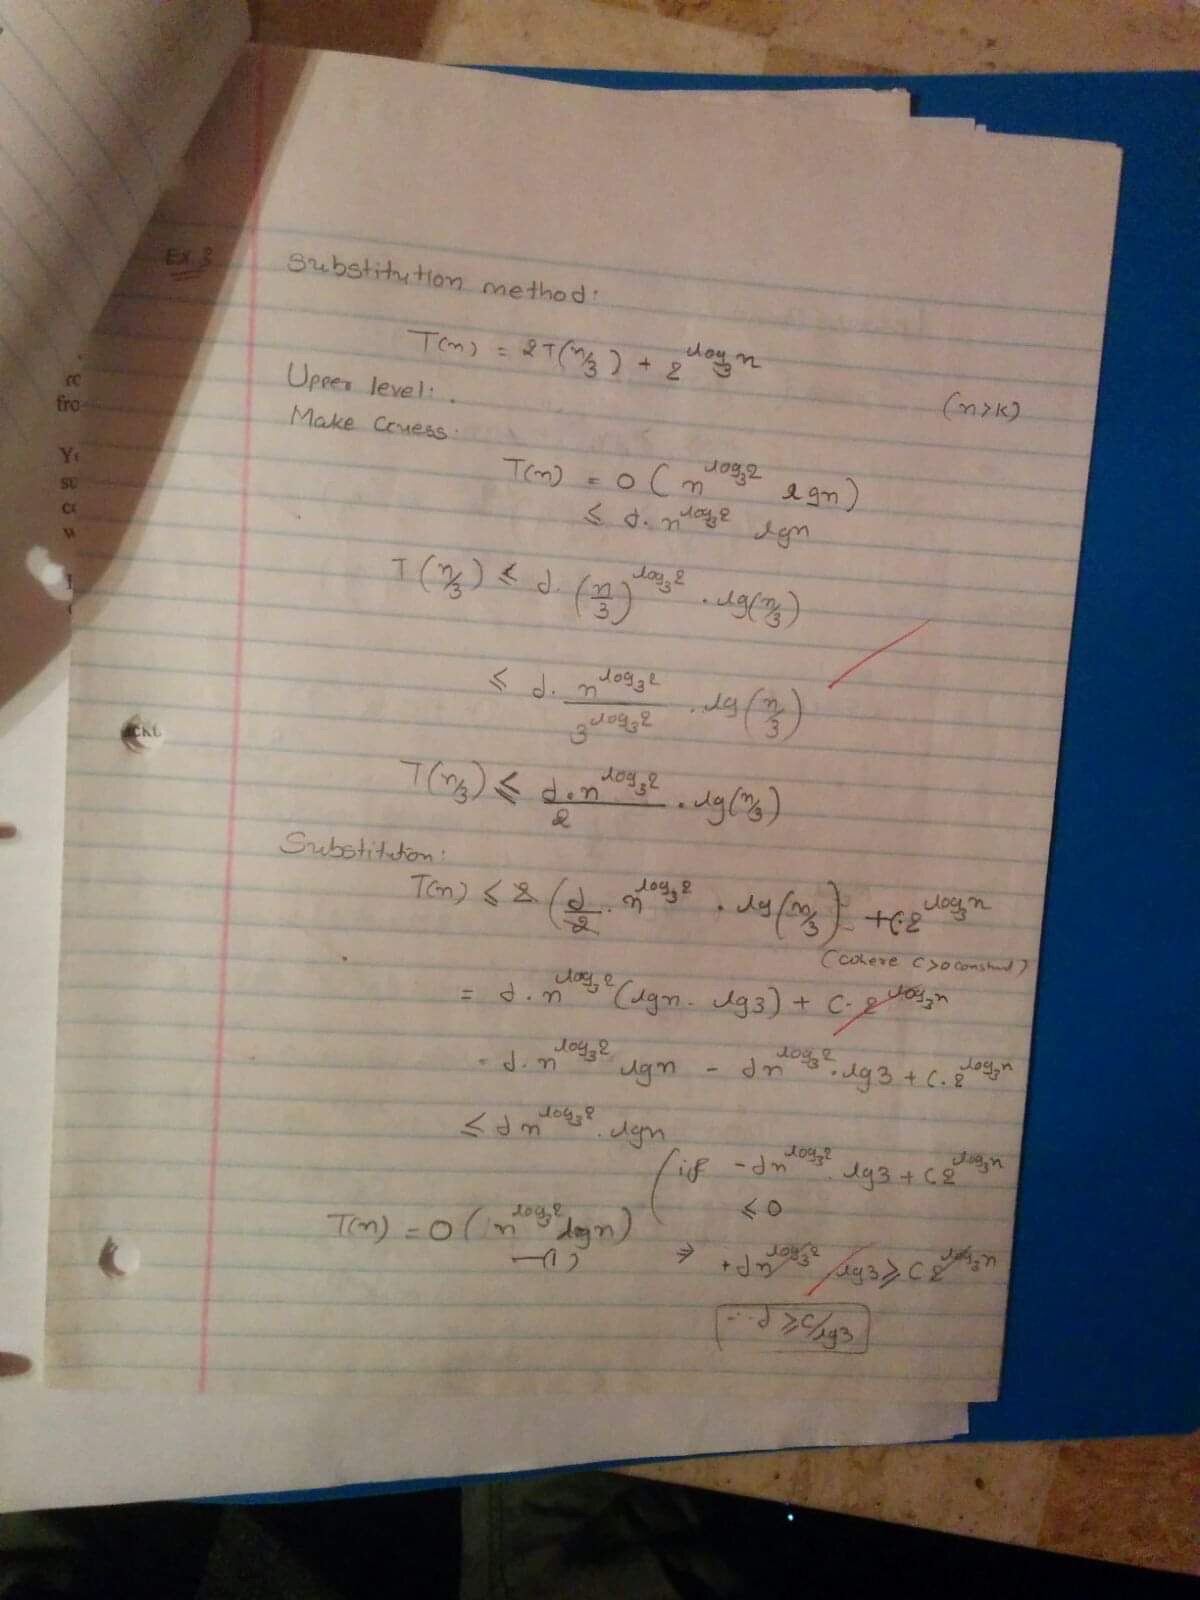 Ex. 3
Substitution method:
T(n) = 2T(n/3) + 2^log₃n
Upper level:.
(n>k)
Make Guess.
T(n) = O(n^log₃2 lgn)
≤ d.n^log₃2 lgn
T(n/3) ≤ d.(n/3)^log₃2 . lg(n/3)
≤ d. n^log₃2 / 3^log₃2 . lg(n/3)
T(n/3) ≤ d.n^log₃2 / 2 . lg(n/3)
Substitution:
T(n) ≤ 2(d/2 . n^log₃2 . lg(n/3)) + C.2^log₃n
(where C>0 constant)
= d.n^log₃2 (lgn - lg3) + C.2^log₃n
= d.n^log₃2 lgn - dn^log₃2 . lg3 + C.2^log₃n
≤ dn^log₃2 . lgn
(if -dn^log₃2 . lg3 + C2^log₃n
≤ 0
T(n) = O(n^log₃2 logn)
—(1)
⇒ +dn^log₃2 . lg3 ≥ C2^log₃n
∴ d ≥ C/lg3
fro
ckt